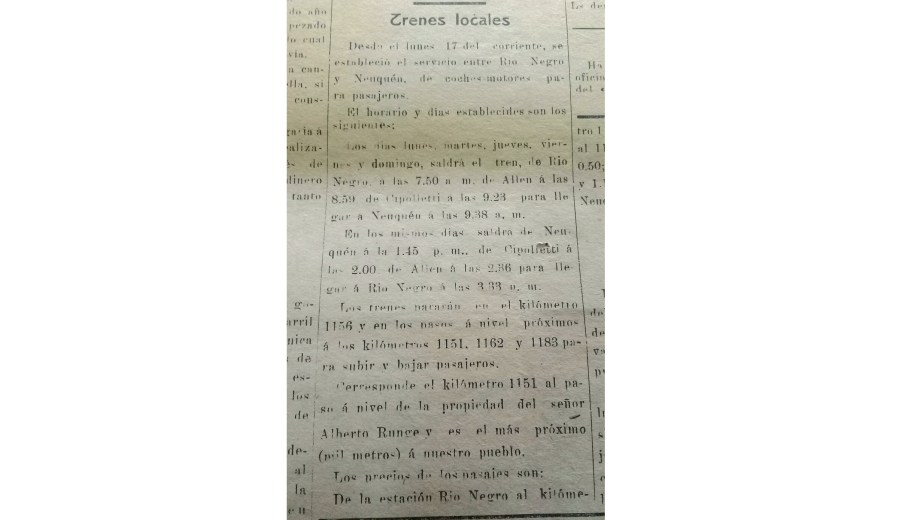 Trenes locales
Desde el lunes 17 del corriente, se
estableció el servicio entre Rio Negro
y Neuquén, de coches-motores pa-
ra pasajeros.
El horario y dias establecides son los
siguientes:
Los dias lunes, martes, jueves, vier-
nes y domingo, saldrá el tren, de Rio
Negro, á las 7.50 a m. de Allen á las
8.59 de Cipolletti a las 9.23 para lle
gar a Neuquén a las 9.38 a. m.
En los mismos dias saldrá de Neu-
quén á la 1.45 p. m., de Cipolletti á
las 2.00 de Allen á las 2.36 para lle-
gar á Rio Negro á las 3.33 p. m.
Los trenes pararán en el kilómetro
1156 y en los pasos á nivel próximos
á los kilómetros 1151, 1162 y 1183 pa-
ra subir y bajar pasajeros.
Corresponde el kilómetro 1151 al pa-
so á nivel de la propiedad del señor
Alberto Runge y es el más próximo
(mil metros) á nuestro pueblo.
Los precios de los pasajes son:
De la estación Rio Negro al kilóme-
do año
pezado
cual
vía.
a can-
lla, si
cons-
garia á
ealiza-
de
dinero
tanto
ga-
arril
nica
da
es-
los
de
de-
al
la
en
Ha
oficin
del
tro 1
al 11
0.50;
y 1.
Neu
de
de
va